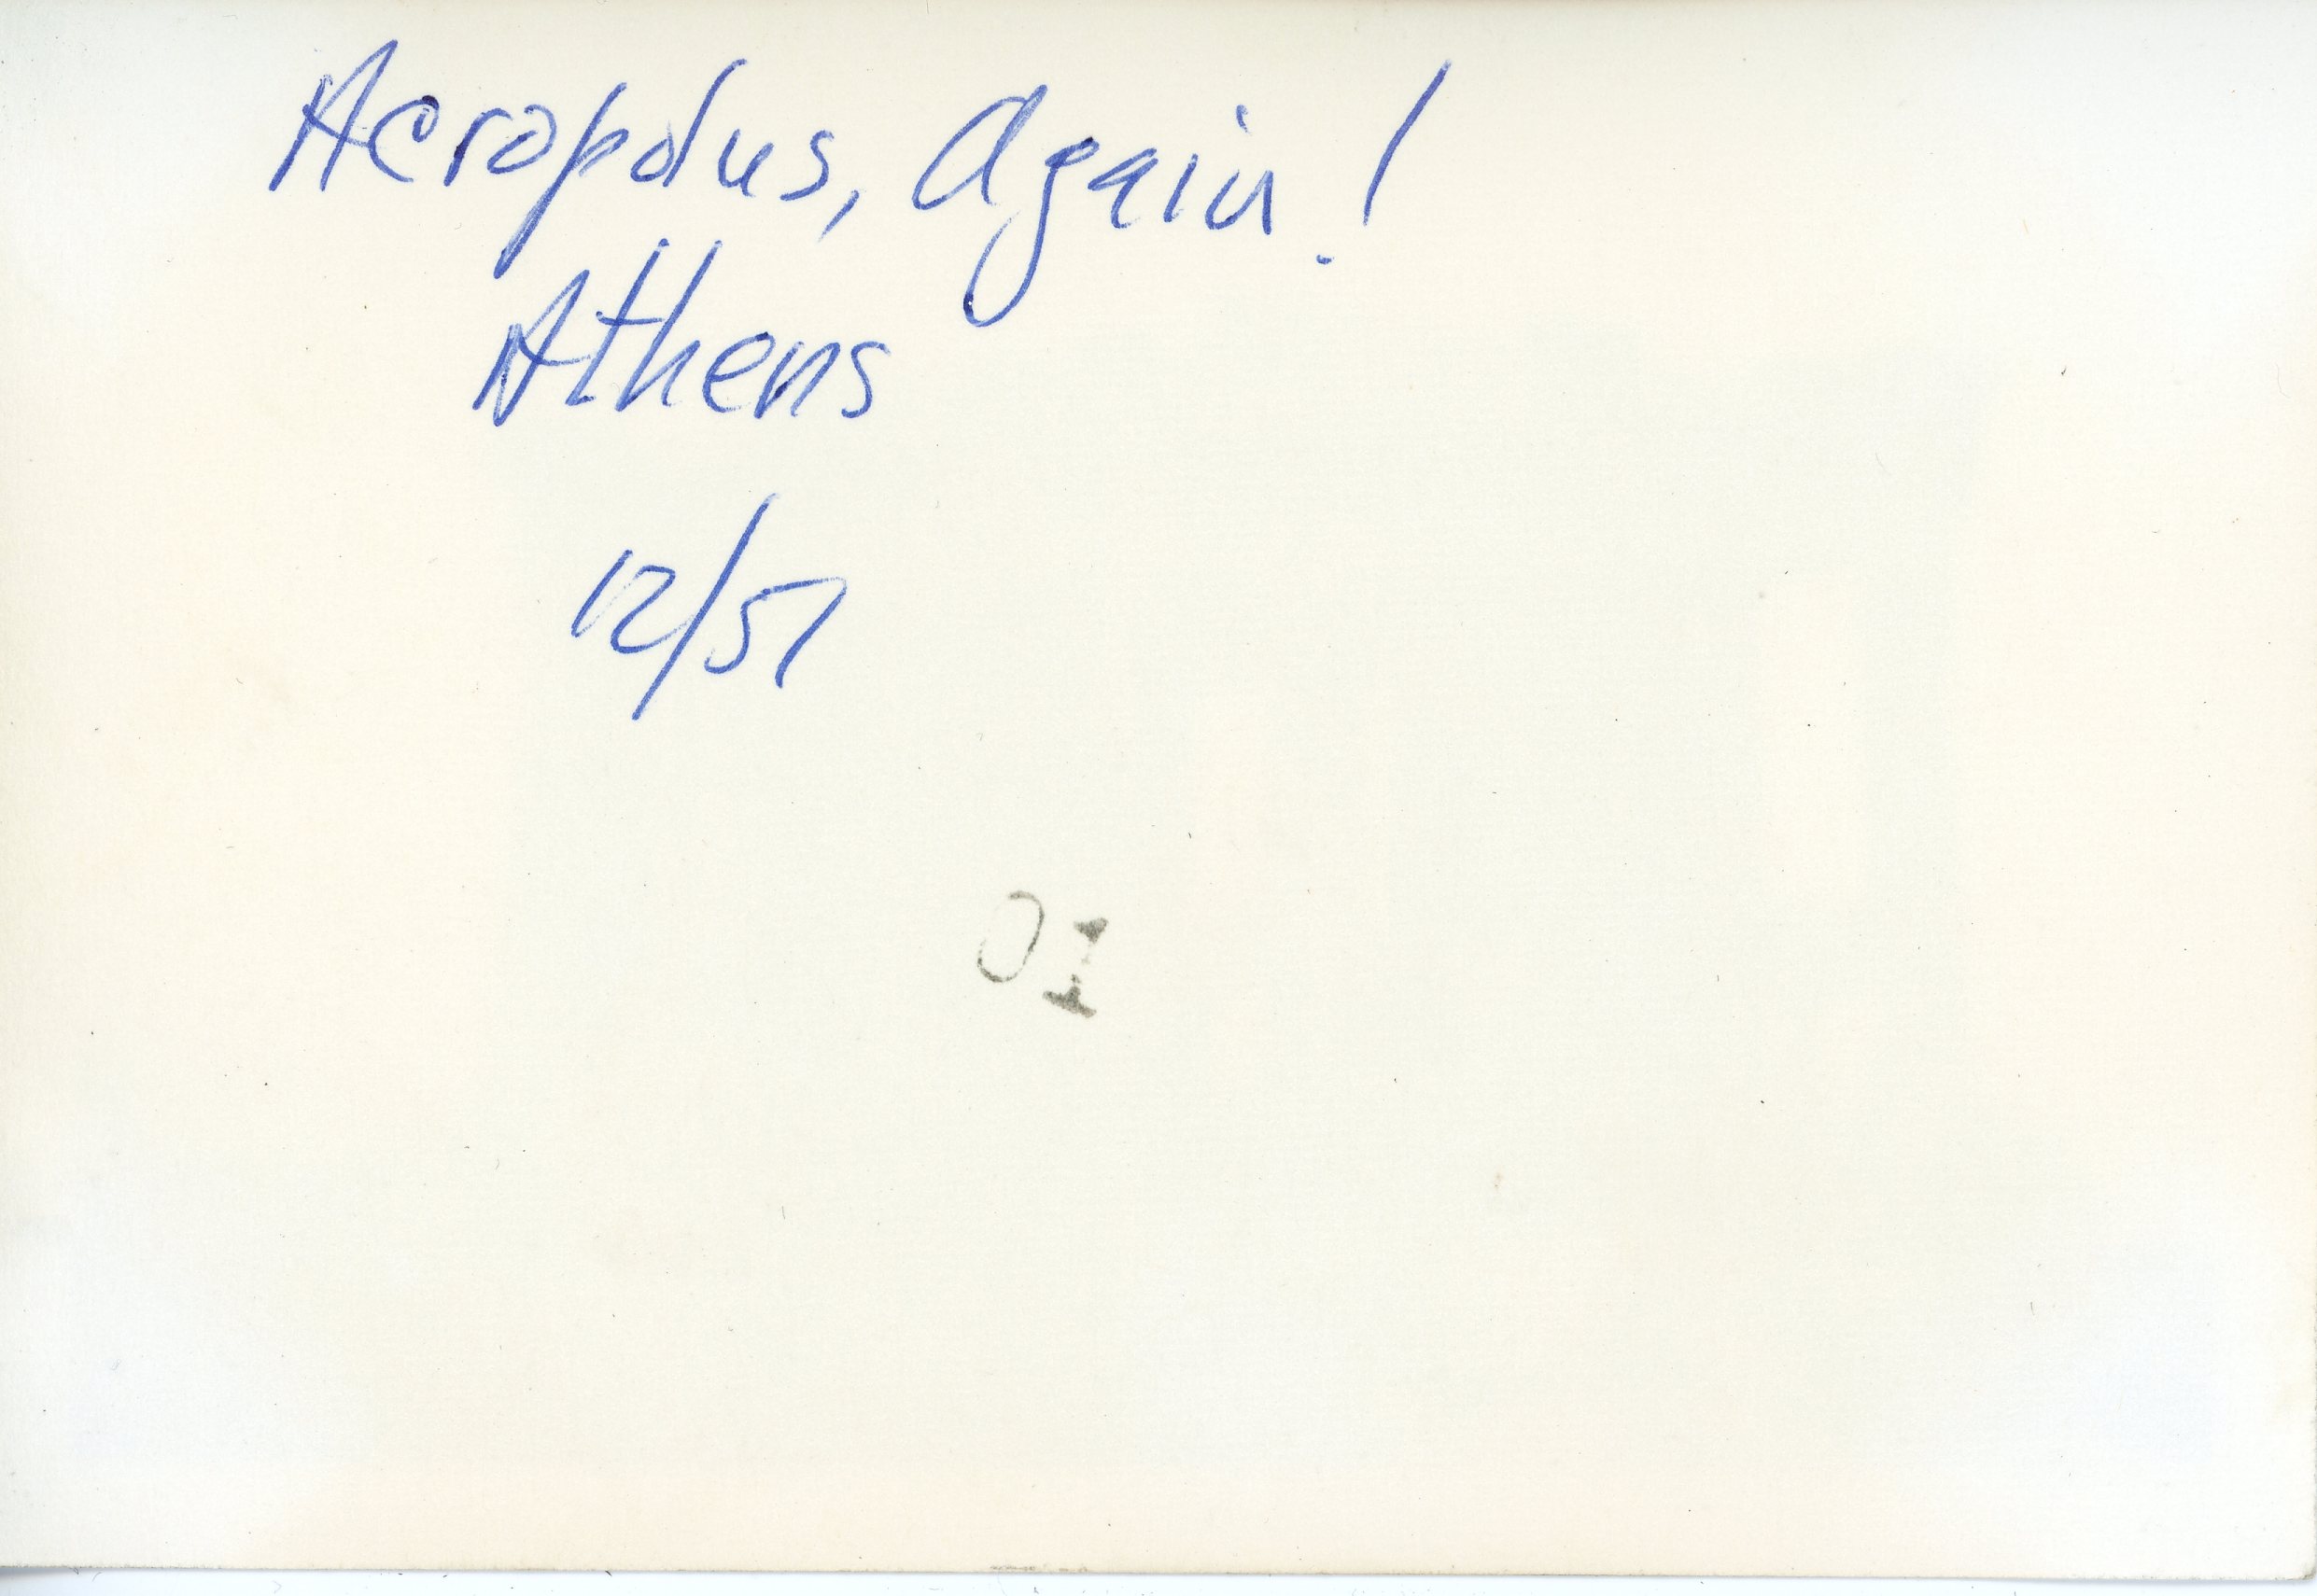 Acropolus, Again!
Athens
12/51
01